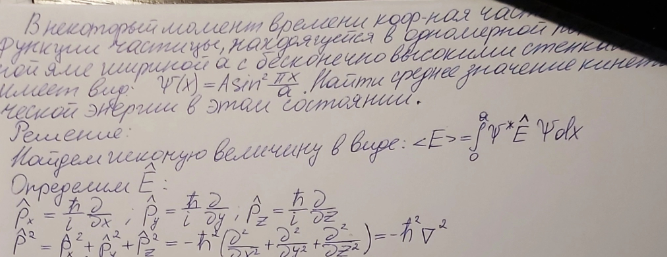 В некоторый момент времени коор-ная част
функции частицы, находящейся в одномерной
ной яме шириной a с бесконечно высокими стенками
имеет вид: Ψ(x) = A sin² πx/a. Найти среднее значение кинети-
ческой энергии в этом состоянии.
Решение:
Найдем искомую величину в виде: <E> = ∫₀ᵃ Ψ* Ê Ψ dx
Определим Ê:
P̂ₓ = ħ/i ∂/∂x ; P̂ᵧ = ħ/i ∂/∂y ; P̂_z = ħ/i ∂/∂z
P̂² = P̂ₓ² + P̂ᵧ² + P̂_z² = -ħ² (∂²/∂x² + ∂²/∂y² + ∂²/∂z²) = -ħ² ∇²